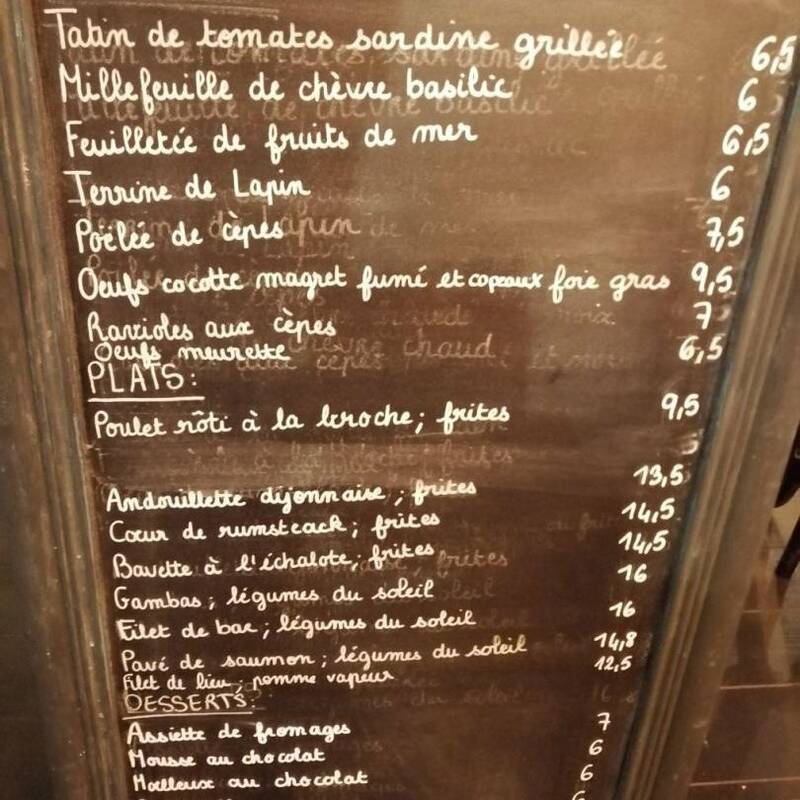 Tatin de tomates sardine grillée 6,5
Millefeuille de chèvre basilic 6
Feuilletée de fruits de mer 6,5
Terrine de Lapin 6
Poëlée de cèpes 7,5
Oeufs cocotte magret fumé et copeaux foie gras 9,5
Ravioles aux cèpes 7
Oeufs meurette 6,5
PLATS:
Poulet rôti à la broche; frites 9,5
Andouillette dijonnaise; frites 13,5
Coeur de rumsteack; frites 14,5
Bavette à l'échalote; frites 14,5
Gambas; légumes du soleil 16
Filet de bar; légumes du soleil 16
Pavé de saumon; légumes du soleil 14,8
Filet de lieu; pomme vapeur 12,5
DESSERTS:
Assiette de fromages 7
Mousse au chocolat 6
Moelleux au chocolat 6
6